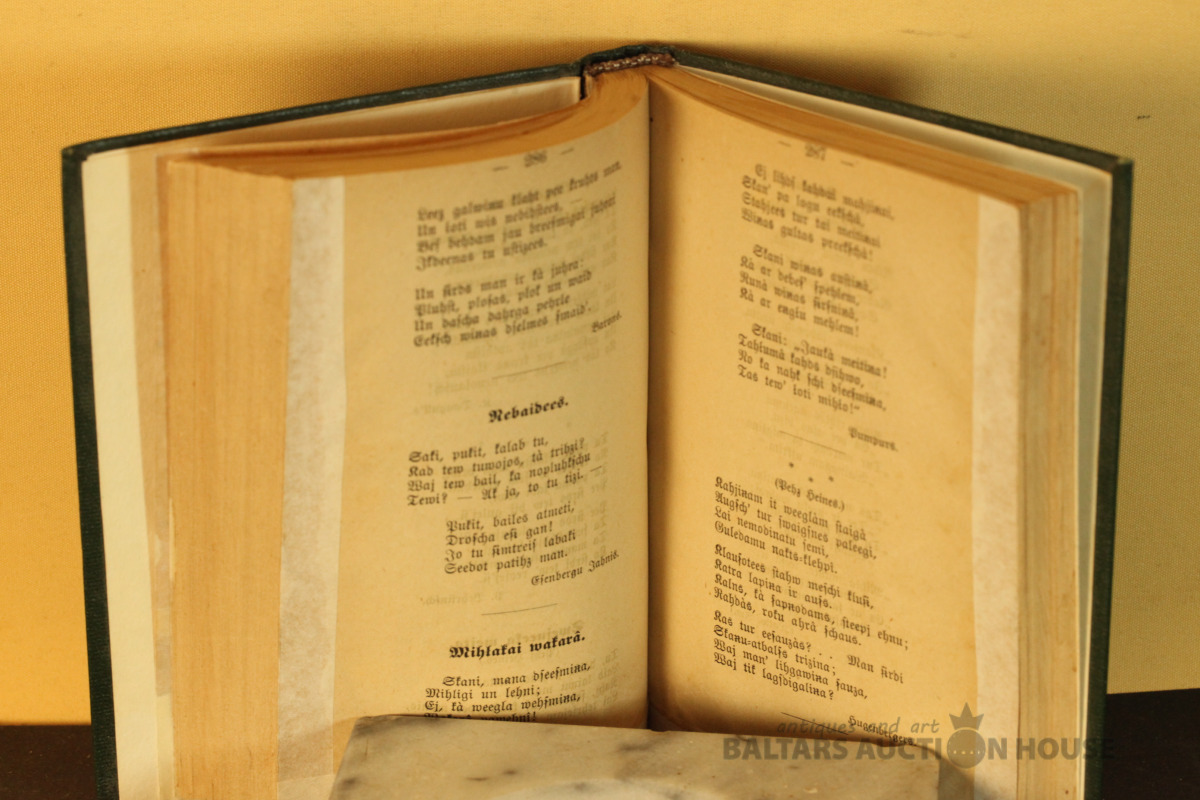 — 286 —
Leez galwinu klaht pee kruhts man,
Un loti wis nebihstees. —
Bes behdam jau breesmigai juhrai
Ikdeenas tu ustizees.
Un sirds man ir kà juhra:
Pluhst, plosas, plok un waid
Un dascha dahrga pehrle
Eeksch winas dselmes smaid'.
Barons.
Nebaidees.
Saki, pukit, kalab tu,
Kad tew tuwojos, tà trihzi?
Waj tew bail, ka nopluhkschu
Tewi? — Ak ja, to tu tizi. —
Pukit, bailes atmeti,
Droscha esi gan!
Jo tu simtreis labaki
Seedot patihz man.
Esenbergu Jahnis.
Mihlakai wakarâ.
Skani, mana dseesmina,
Mihligi un lehni;
Ej, kà weegla wehsmina,
— 287 —
Ej lihds kahdai mahjinai,
Skan' pa logu eekschâ,
Stahjees tur tai meitinai
Winas gultas preekschâ!
Skani winas austinâ,
Kà ar debes' spehlem,
Runà winas sirsninâ,
Kà ar engelu mehlem!
Skani: „Jaukà meitina!
Tahlumâ kahds dsihwo,
No ka nahk schi dseesmina,
Tas tew' loti mihlo!"
Pumpurs.
* * *
(Pehz Heines.)
Kahjinam it weeglàm staigâ
Augsch' tur swaigsnes paleegi,
Lai nemodinatu semi,
Guledamu nakts=klehpi.
Klausotees stahw meschi klusi,
Katra lapina ir auss.
Kalns, kà sapnodams, steepj ehnu;
Rahdàs, roku ahrâ schaus.
Kas tur eesauzàs? . . Man sirdi
Skanu=atbalss trizina;
Waj man' lihgawina sauza,
Waj tik lagsdigalina?
antiques and art
BALTARS AUCTION HOUSE